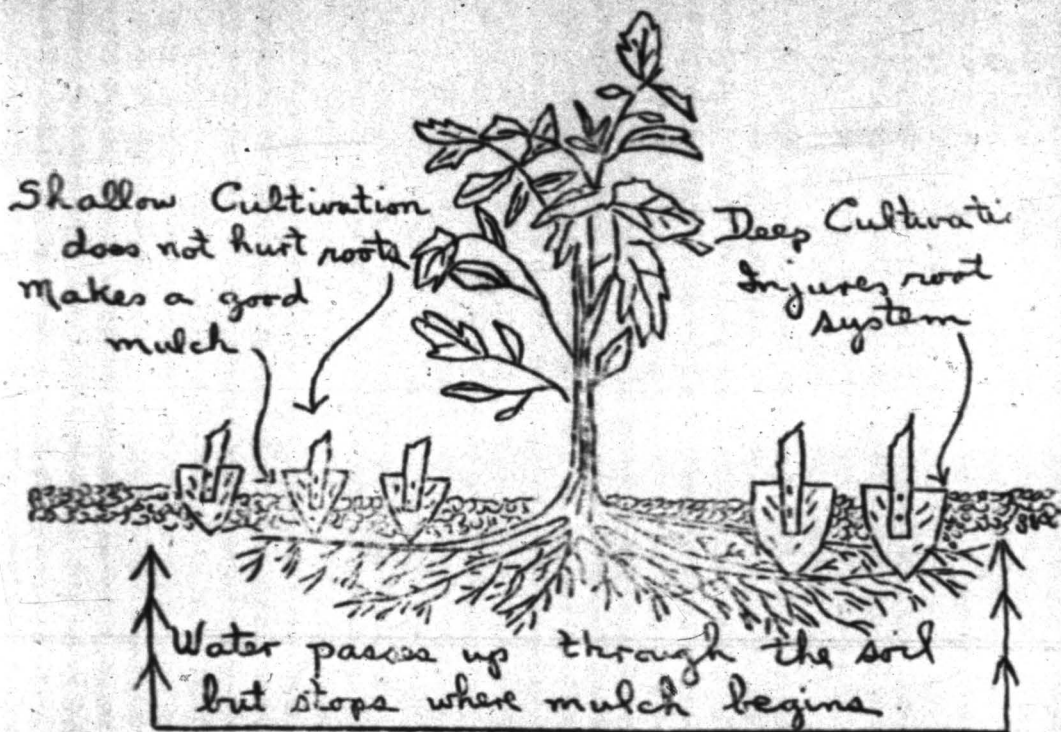 Shallow Cultivation
does not hurt roots
Makes a good
mulch
Deep Cultivati
Injures root
system
Water passes up through the soil
but stops where mulch begins